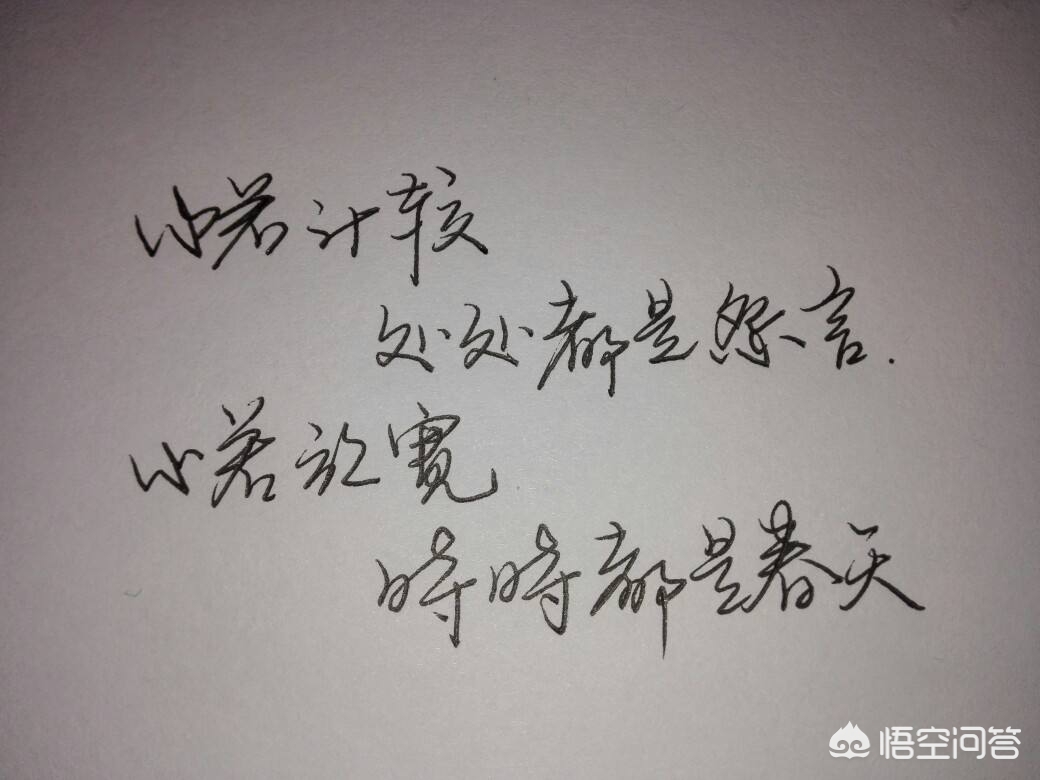 心若计较
处处都是怨言.
心若放寬
時時都是春天
悟空问答